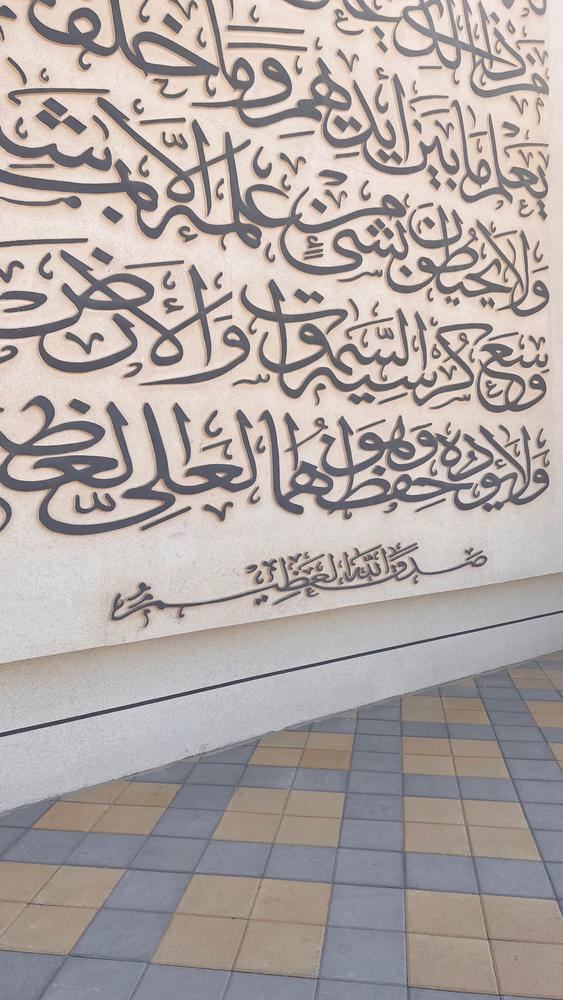 من ذا الذي
يعلم ما بين أيديهم وما خلفهم
ولا يحيطون بشيء من علمه إلا بما شاء
وسع كرسيه السموات والأرض
ولا يؤوده حفظهما وهو العلي العظيم
صدق الله العظيم